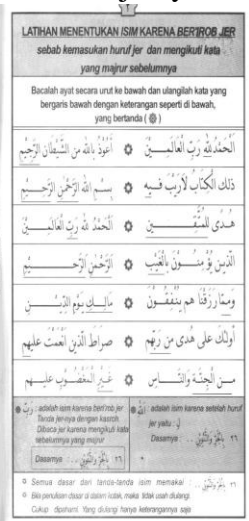 ٢
LATIHAN MENENTUKAN ISIM KARENA BER'IROB JER
sebab kemasukan huruf jer dan mengikuti kata
yang majrur sebelumnya
Bacalah ayat secara urut ke bawah dan ulangilah kata yang
bergaris bawah dengan keterangan seperti di bawah,
yang bertanda ( ۞ )
اَلْحَمْدُ لِلّٰهِ رَبِّ الْعَالَمِيْنَ ۞ اَعُوْذُ بِاللهِ مِنَ الشَّيْطَانِ الرَّجِيْمِ
ذٰلِكَ الْكِتَابُ لَارَيْبَ فِيْهِ ۞ بِسْمِ اللهِ الرَّحْمٰنِ الرَّحِيْمِ
هُدًى لِّلْمُتَّقِيْنَ ۞ اَلْحَمْدُ لِلّٰهِ رَبِّ الْعَالَمِيْنَ
الَّذِيْنَ يُؤْمِنُوْنَ بِالْغَيْبِ ۞ الرَّحْمٰنِ الرَّحِيْمِ
وَمِمَّا رَزَقْنَا هُمْ يُنْفِقُوْنَ ۞ مَالِكِ يَوْمِ الدِّيْنِ
أُولٰئِكَ عَلَى هُدًى مِنْ رَبِّهِمْ ۞ صِرَاطَ الَّذِيْنَ اَنْعَمْتَ عَلَيْهِمْ
مِنَ الْجِنَّةِ وَالنَّاسِ ۞ غَيْرِ الْمَغْضُوْبِ عَلَيْهِمْ
رَبِّ : adalah isim karena beri'rob jer
Tanda jer-nya dengan kasroh
Dibaca jer karena mengikuti kata
sebelumnya yang majrur
Dasarnya
اللهِ : adalah isim karena setelah huruf
jer yaitu : لِ
Dasarnya
Semua dasar dari tanda-tanda isim memakai :
Bila penulisan dasar di dalam kotak, maka tidak usah diulangi.
Cukup dipahami. Yang diulangi hanya keterangannya saja